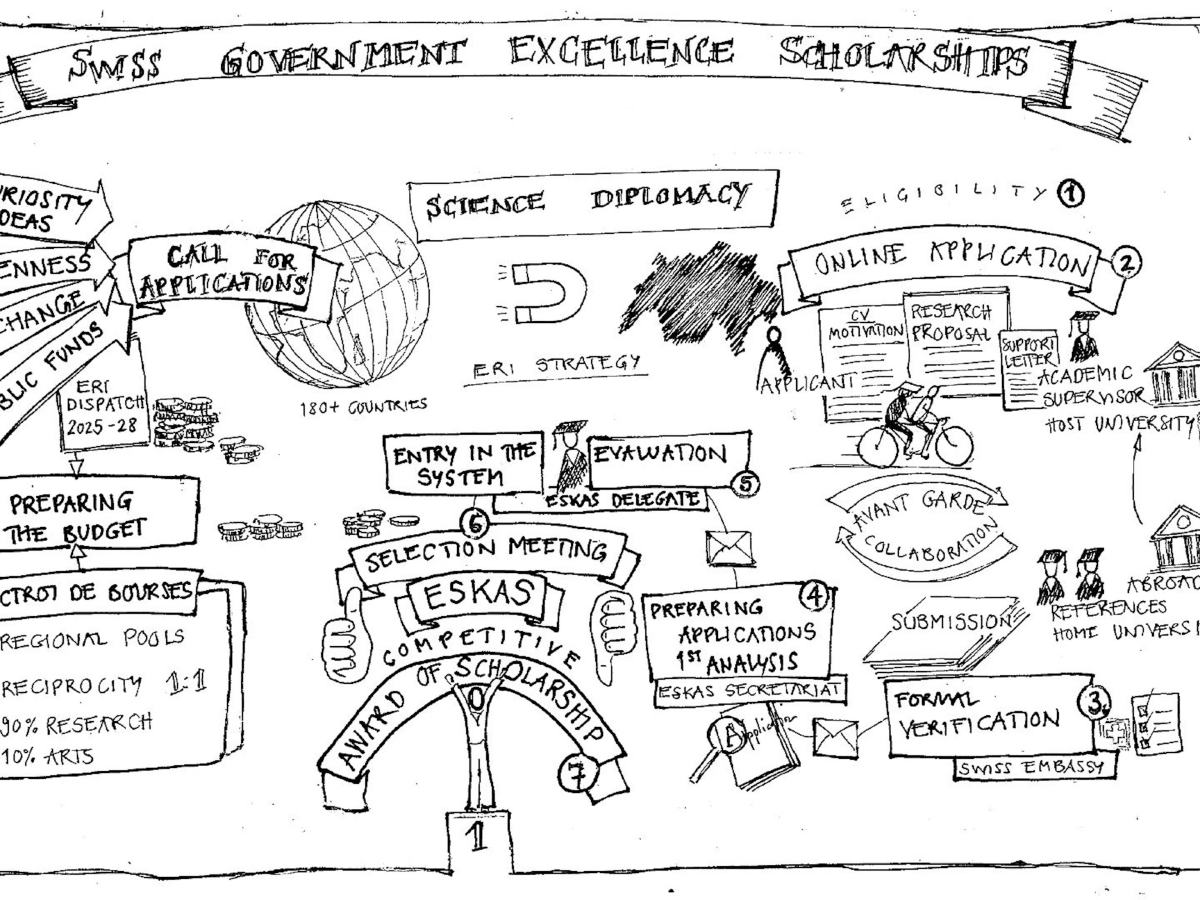 SWISS GOVERNMENT EXCELLENCE SCHOLARSHIPS
URIOSITY
DEAS
ENNESS
CHANGE
BLIC FUNDS
CALL FOR
APPLICATIONS
180+ COUNTRIES
SCIENCE DIPLOMACY
ERI STRATEGY
ELIGIBILITY 1
ONLINE APPLICATION 2
CV
MOTIVATION
RESEARCH
PROPOSAL
SUPPORT
LETTER
APPLICANT
ACADEMIC
SUPERVISOR
HOST UNIVERSITY
AVANT GARDE
COLLABORATION
ABROAD
REFERENCES
HOME UNIVERSI
SUBMISSION
FORMAL
VERIFICATION
3.
SWISS EMBASSY
PREPARING
APPLICATIONS
1ST ANALYSIS
4
ESKAS SECRETARIAT
Application
EVALUATION
5
ESKAS DELEGATE
ENTRY IN THE
SYSTEM
6
SELECTION MEETING
ESKAS
COMPETITIVE
AWARD OF SCHOLARSHIP
7
1
ERI
DISPATCH
2025-28
PREPARING
THE BUDGET
CTROI DE BOURSES
REGIONAL POOLS
RECIPROCITY 1:1
90% RESEARCH
10% ARTS